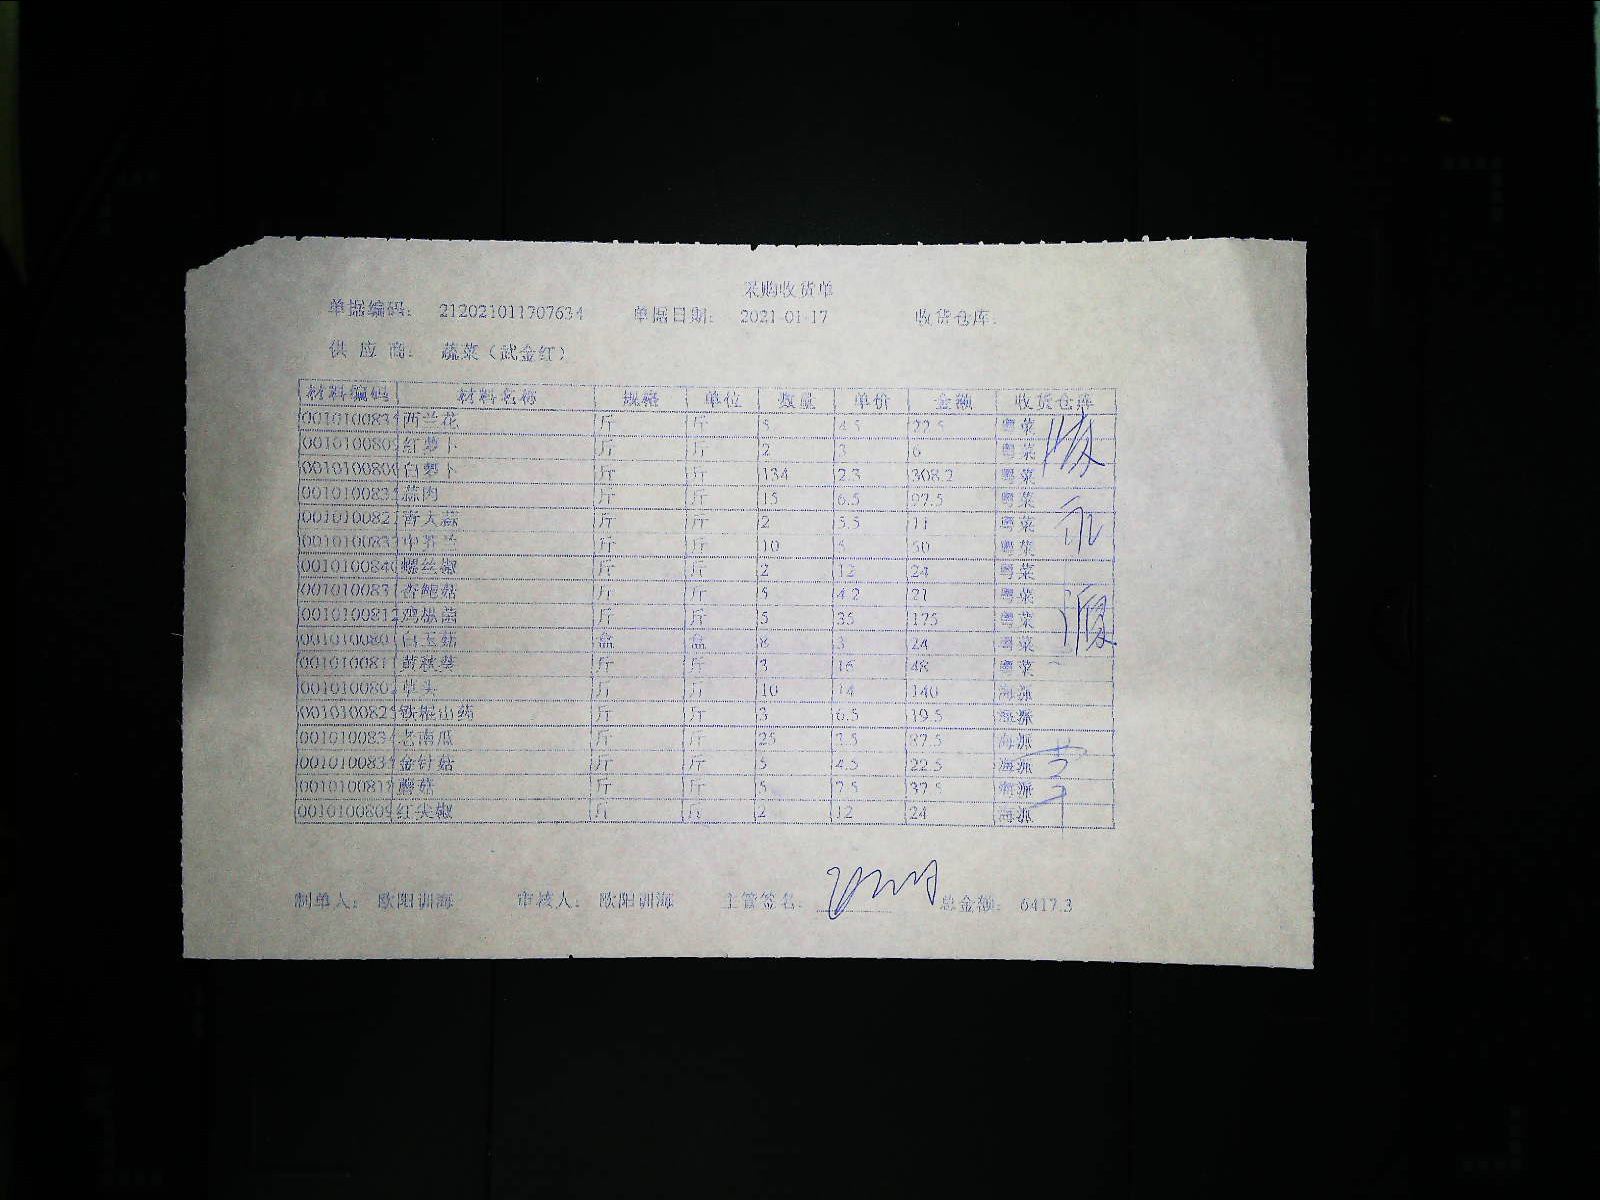 采购收货单
单据编码: 212021011707634 单据日期: 2021-01-17 收货仓库:
供 应 商: 蔬菜(武金红)
材料编码 材料名称 规格 单位 数量 单价 金额 收货仓库
001010083 西兰花 斤 斤 5 4.5 22.5 粤菜
001010080 红萝卜 斤 斤 2 3 6 粤菜
001010080 白萝卜 斤 斤 134 2.3 308.2 粤菜
001010083 蒜肉 斤 斤 15 6.5 97.5 粤菜
001010082 青大蒜 斤 斤 2 5.5 11 粤菜
001010083 中芥兰 斤 斤 10 5 50 粤菜
001010084 螺丝椒 斤 斤 2 12 24 粤菜
001010083 杏鲍菇 斤 斤 5 4.2 21 粤菜
0010100812 鸡枞菌 斤 斤 5 35 175 粤菜
001010080 白玉菇 盒 盒 8 3 24 粤菜
001010081 黄秋葵 斤 斤 3 16 48 粤菜
001010080 草头 斤 斤 10 14 140 海派
001010082 铁棍山药 斤 斤 3 6.5 19.5 海派
001010083 老南瓜 斤 斤 25 3.5 87.5 海派
001010083 金针姑 斤 斤 5 4.5 22.5 海派
001010081 蘑菇 斤 斤 5 7.5 37.5 海派
001010080 红尖椒 斤 斤 2 12 24 海派
制单人: 欧阳训海 审核人: 欧阳训海 主管签名: 总金额: 6417.3